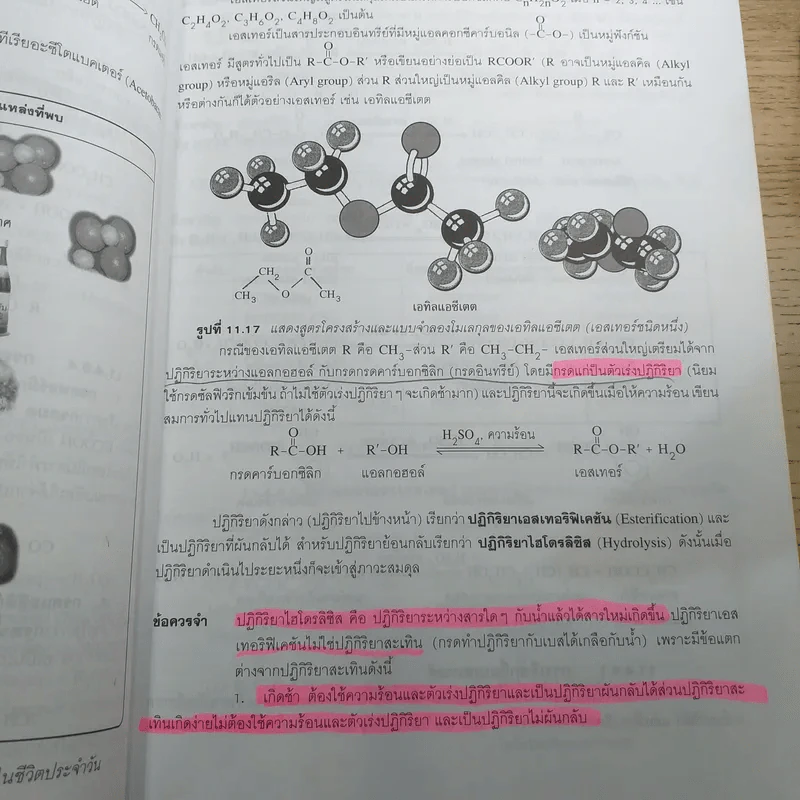 C₂H₄O₂, C₃H₆O₂, C₄H₈O₂ เป็นต้น
เอสเทอร์เป็นสารประกอบอินทรีย์ที่มีหมู่แอลคอกซีคาร์บอนิล (-C-O-) เป็นหมู่ฟังก์ชัน
O
O
เอสเทอร์ มีสูตรทั่วไปเป็น R-C-O-R′ หรือเขียนอย่างย่อเป็น RCOOR′ (R อาจเป็นหมู่แอลคิล (Alkyl
group) หรือหมู่แอริล (Aryl group) ส่วน R ส่วนใหญ่เป็นหมู่แอลคิล (Alkyl group) R และ R′ เหมือนกัน
หรือต่างกันก็ได้ตัวอย่างเอสเทอร์ เช่น เอทิลแอซีเตต
O
CH₂ C
CH₃ O CH₃
เอทิลแอซีเตต
รูปที่ 11.17 แสดงสูตรโครงสร้างและแบบจำลองโมเลกุลของเอทิลแอซีเตต (เอสเทอร์ชนิดหนึ่ง)
กรณีของเอทิลแอซีเตต R คือ CH₃-ส่วน R′ คือ CH₃-CH₂- เอสเทอร์ส่วนใหญ่เตรียมได้จาก
ปฏิกิริยาระหว่างแอลกอฮอล์ กับกรดกรดคาร์บอกซิลิก (กรดอินทรีย์) โดยมีกรดแก่ป็นตัวเร่งปฏิกิริยา (นิยม
ใช้กรดซัลฟิวริกเข้มข้น ถ้าไม่ใช้ตัวเร่งปฏิกิริยา ๆ จะเกิดช้ามาก) และปฏิกิริยานี้จะเกิดขึ้นเมื่อให้ความร้อน เขียน
สมการทั่วไปแทนปฏิกิริยาได้ดังนี้
O H₂SO₄, ความร้อน O
R-C-OH + R′-OH R-C-O-R′ + H₂O
กรดคาร์บอกซิลิก แอลกอฮอล์ เอสเทอร์
ปฏิกิริยาดังกล่าว (ปฏิกิริยาไปข้างหน้า) เรียกว่า ปฏิกิริยาเอสเทอริฟิเคชัน (Esterification) และ
เป็นปฏิกิริยาที่ผันกลับได้ สำหรับปฏิกิริยาย้อนกลับเรียกว่า ปฏิกิริยาไฮโดรลิซิส (Hydrolysis) ดังนั้นเมื่อ
ปฏิกิริยาดำเนินไประยะหนึ่งก็จะเข้าสู่ภาวะสมดุล
ข้อควรจำ ปฏิกิริยาไฮโดรลิซิส คือ ปฏิกิริยาระหว่างสารใด ๆ กับน้ำแล้วได้สารใหม่เกิดขึ้น ปฏิกิริยาเอส
เทอริฟิเคชันไม่ใช่ปฏิกิริยาสะเทิน (กรดทำปฏิกิริยากับเบสได้เกลือกับน้ำ) เพราะมีข้อแตก
ต่างจากปฏิกิริยาสะเทินดังนี้
1. เกิดช้า ต้องใช้ความร้อนและตัวเร่งปฏิกิริยาและเป็นปฏิกิริยาผันกลับได้ส่วนปฏิกิริยาสะ
เทินเกิดง่ายไม่ต้องใช้ความร้อนและตัวเร่งปฏิกิริยา และเป็นปฏิกิริยาไม่ผันกลับ
ที่เรียอะซีโตแบคเตอร์ (Acetobac
แหล่งที่พบ
ในชีวิตประจำวัน